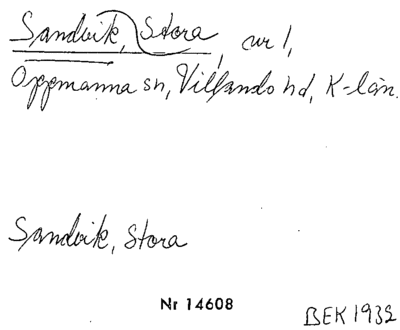 Sandvik, Stora, nr 1,
Oppmanna sn, Villands hd, K-län.
Sandvik, Stora
Nr 14608
BEK 1932